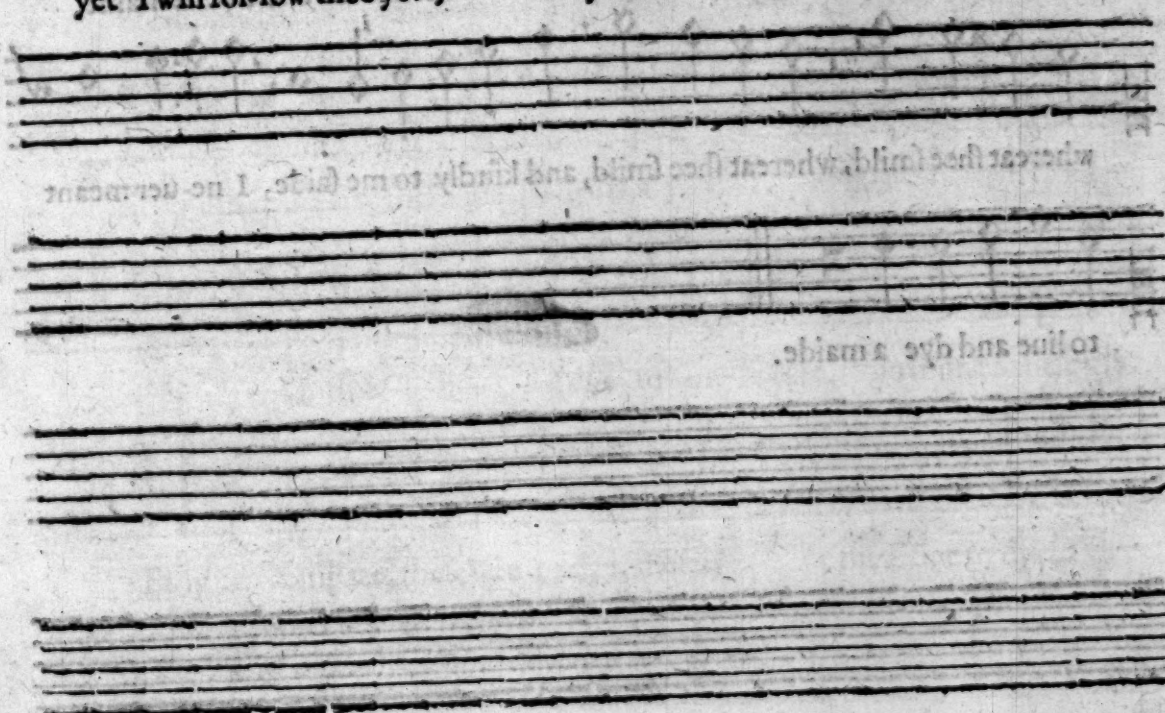 yet I will fol-low thee
whereat ſhee ſmild, whereat ſhee ſmild, and kindly to me ſaide. I ne-uer meant
to liue and dye a maide.